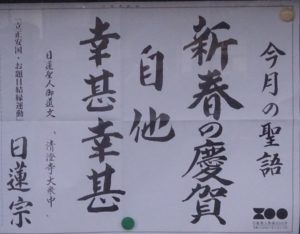 今月の聖語
新春の慶賀
自他
幸甚幸甚
日蓮聖人御遺文
、清澄寺大衆中、
「立正安国・お題目結縁運動」
日蓮宗
ZOO